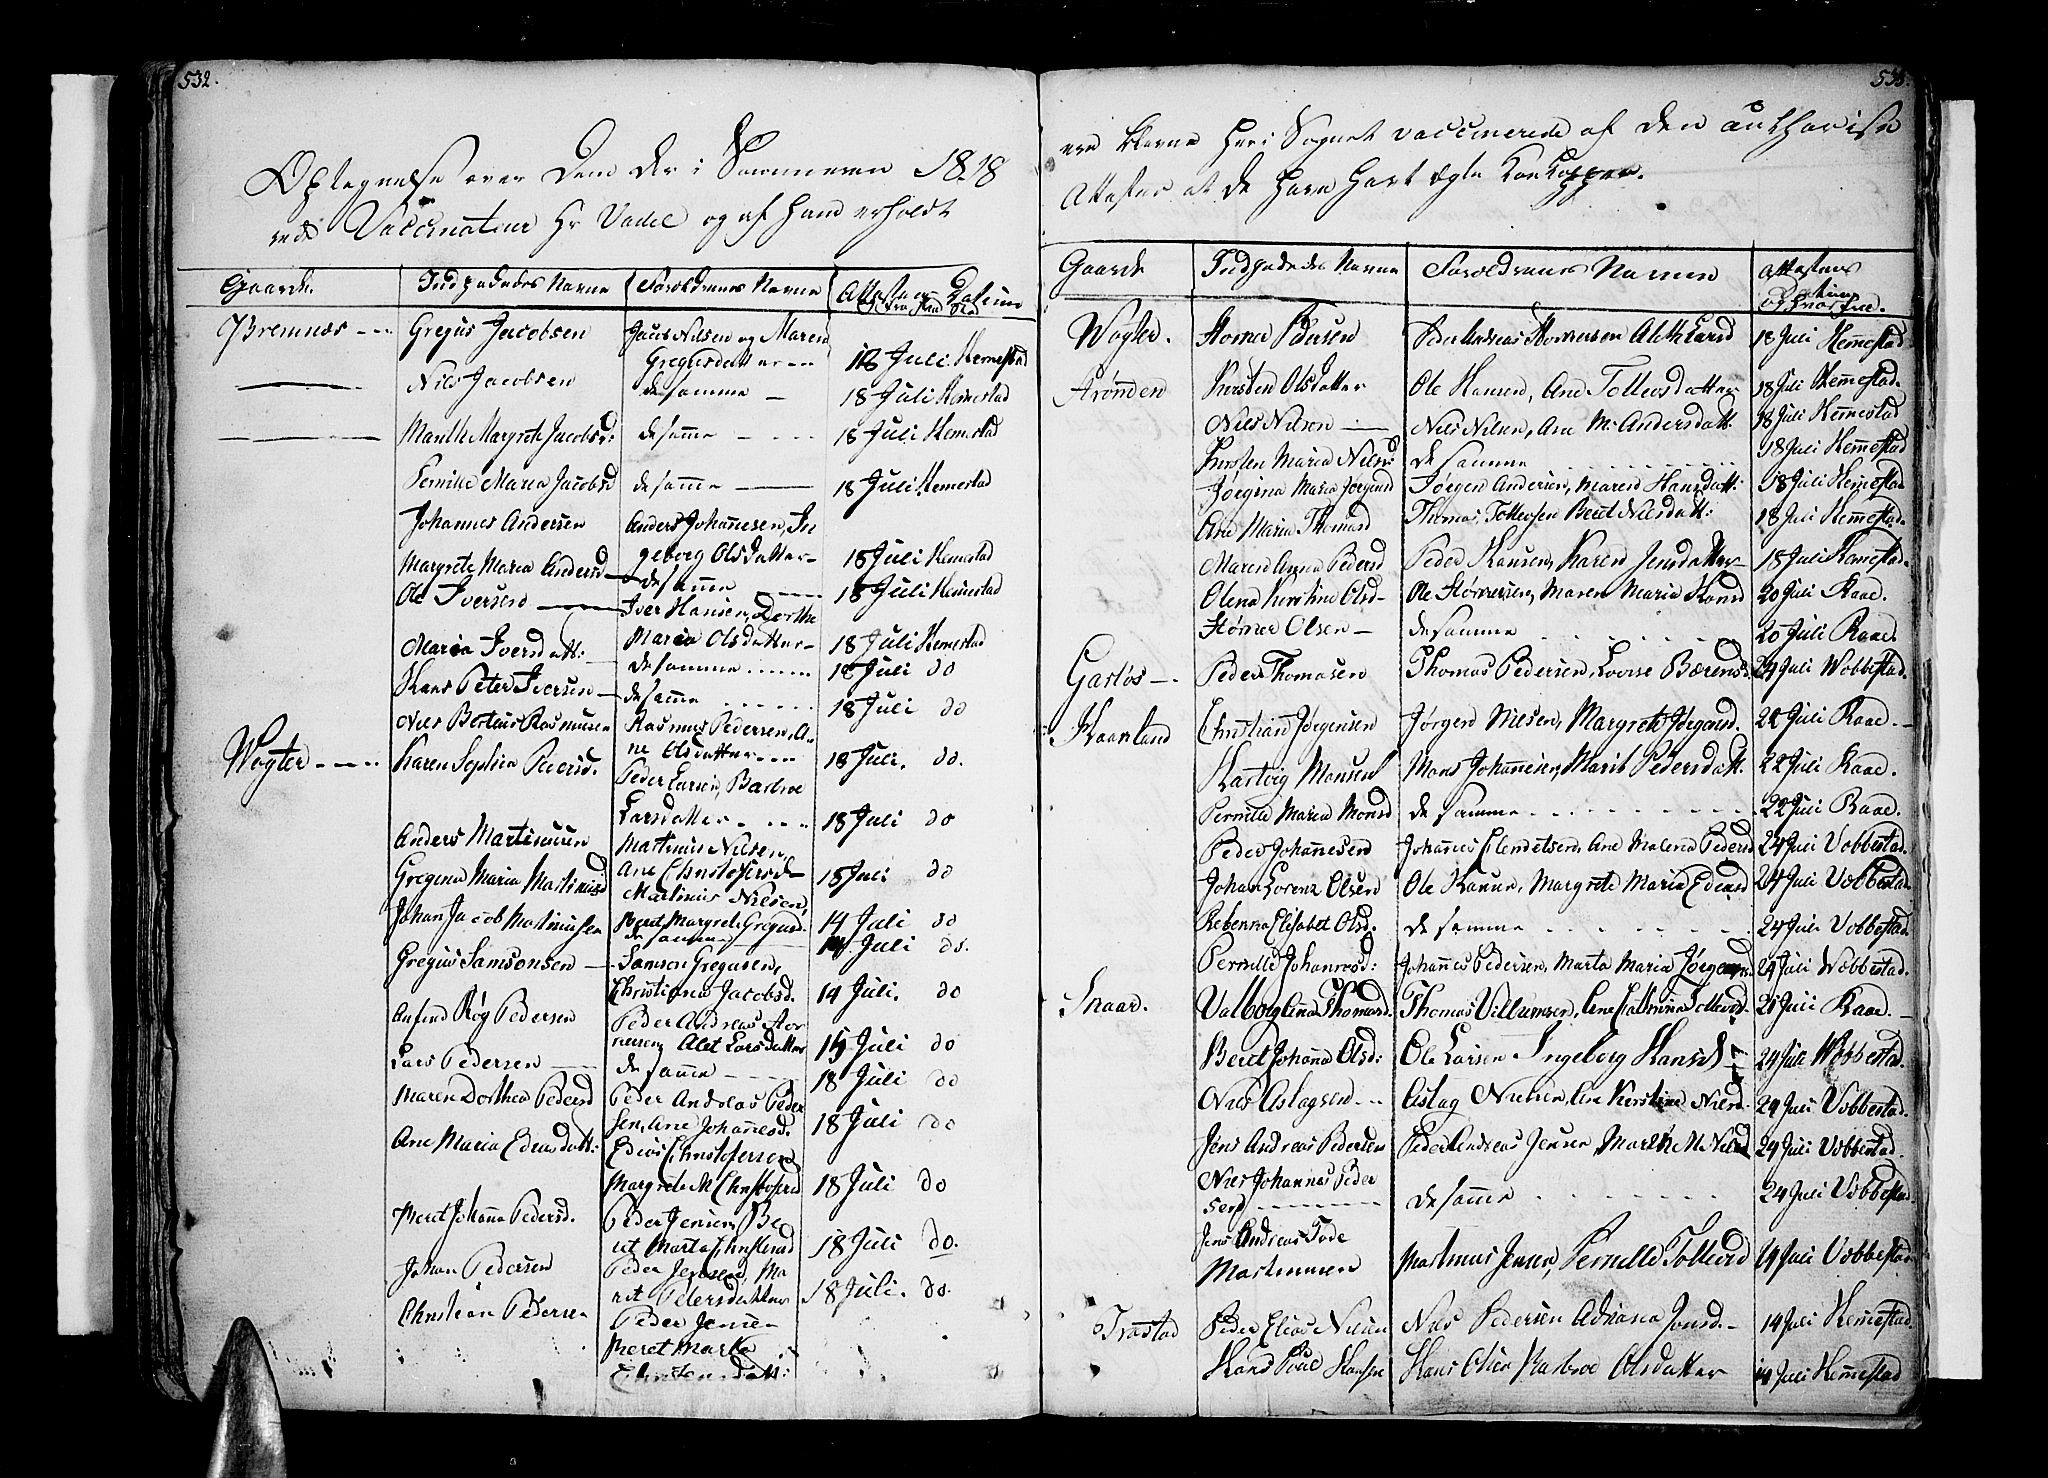 532.
Optegnelse over Dem der i Sommeren 1818
ved Vaccinateur Hr Vadel og af ham erholdt
Gaarde. Indpodedes Navne Foreldrenes Navne Attestens Datum
Bremnæs Gregus Jacobsen Jacob Nilsen og Maren
Gregusdatter 18 Juli Hemestad
Nils Jacobsen de samme 18 Juli Hemestad
Marith Margrete Jacobsd: de samme 18 Juli Hemestad
Pernille Maria Jacobsd de samme 18 Juli Hemestad
Johannes Andersen Anders Johannesen, In
geborg Olsdatter 18 Juli Hemestad
Margrete Maria Andersd de samme 18 Juli Hemestad
Ole Iversen Iver Hansen, Dorthe
Maria Olsdatter 18 Juli Hemestad
Maria Iversdatt: de samme 18 Juli do
Hans Peter Iversen de samme 18 Juli do
Nils Bertius Rasmussen Rasmus Pedersen, A
ne Olsdatter 18 Juli. do.
Wogter Karen Sophia Pedersd. Peder Larsen, Barbroe
Larsdatter 18 Juli do
Anders Martinusen Martinus Nilsen,
Ane Christofersd 18 Juli do
Gregina Maria Martinusd Martinus Nilsen,
Beret Margrete Gregusd. 14 Juli do
Johan Jacob Martinussen de samme 14 Juli do.
Gregus Samsonsen Samson Gregusen,
Christiana Jacobsd. 14 Juli. do
Anfind Røg Pedersen Peder Andreas Hor
nesen, Alet Larsdatter 15 Juli do
Lars Pedersen de samme 18 Juli do
Maren Dorthea Pedersd Peder Andreas Peder
sen, Ane Johannesd. 18 Juli do
Ane Maria Edensdatt: Edeus Christofersen
Margrete M Christofersd 18 Juli do
Meret Johanna Pedersd. Peder Jensen, Be
ret Marta Christensd 18 Juli do.
Johan Pedersen Peder Jensen, Ma
rit Pedersdatter 18 Juli. do.
Christian Pedersen Peder Jensen
Meret Marta
Christensdatt:
ere blevne her i Sognet vaccinerede af den authorise
Attester at de have havt ægte Koekopper.
Gaarde Indpodedes Navne Foreldrenes Navne Attestens
Datum
Wogter. Horner Pedersen Peder Andreas Hornersen Aleth Larsd 18 Juli Hemmestad
Kirsten Olsdatter Ole Hansen, Ane Tollevsdatter 18 Juli Hemmestad.
Nils Nilsen Nils Nilsen, Ane M: Andersdatt: 18 Juli Hemmestad
Kirsten Maria Nilsd: de samme 18 Juli Hemmestad
Jørgina Maria Jørgensd Jørgen Andersen, Maren Hansdatt: 18 Juli Hemmestad
Ane Maria Thomasd Thomas Tollevsen Beret Nilsdatt: 18 Juli Hemmestad.
Maren Anna Pedersd Peder Hansen, Karen Jensdatter 18 Juli Hemestad.
Olena Kirstine Olsd Ole Hornersen, Maren Maria Hansd 20 Juli Raae.
Horner Olsen de samme 20 Juli Raae.
Garløs Peder Thomasen Thomas Pedersen, Lovise Bærensd. 24 Juli Wobbestad.
Kaarsland Christian Jørgensen Jørgen Nilsen, Margrete Jørgensd. 22 Juli Raae.
Hartvig Monsen Mons Johannesen, Marit Pedersdatt. 22 Juli Raae.
Pernille Maria Monsd de samme 22 Juli Raae.
Peder Johannesen Johannes Clemetsen, Ane Malena Pedersd 24 Juli Vobbestad.
Johan Lorenz Olsen Ole Hansen, Margrete Maria Edensd 24 Juli Vobbestad.
Rebenna Elisabet Olsd. de samme 24 Juli Vobbestad.
Pernille Johannesd: Johannes Pedersen, Marta Maria Jørgensd 24 Juli Wobbestad.
Snaar. Valborg Ana Thomasd. Thomas Villumsen, Ane Cathrina Tollevsd. 21 Juli Raae.
Beret Johanna Olsd: Ole Larsen Ingeborg Hansd 24 Juli Wobbestad.
Nils Aslagsen Aslag Nilsen, Ane Kirstine Nilsd. 24 Juli Vobbestad.
Jens Andreas Pedersen Peder Andreas Jensen Marith M. Nilsd 24 Juli Vobbestad.
Nils Johannes Peder
sen de samme 24 Juli Vobbestad.
Jens Andreas Tode
Martinusen Martinus Jensen, Pernille Tollevsd 24 Juli Vobbestad
Trastad Peder Elias Nilsen Nils Pedersen Adriana Jonsd. 14 Juli Hemestad.
Hans Povel Hansen Hans Olsen Barbroe Olsdatter 14 Juli Hemmestad